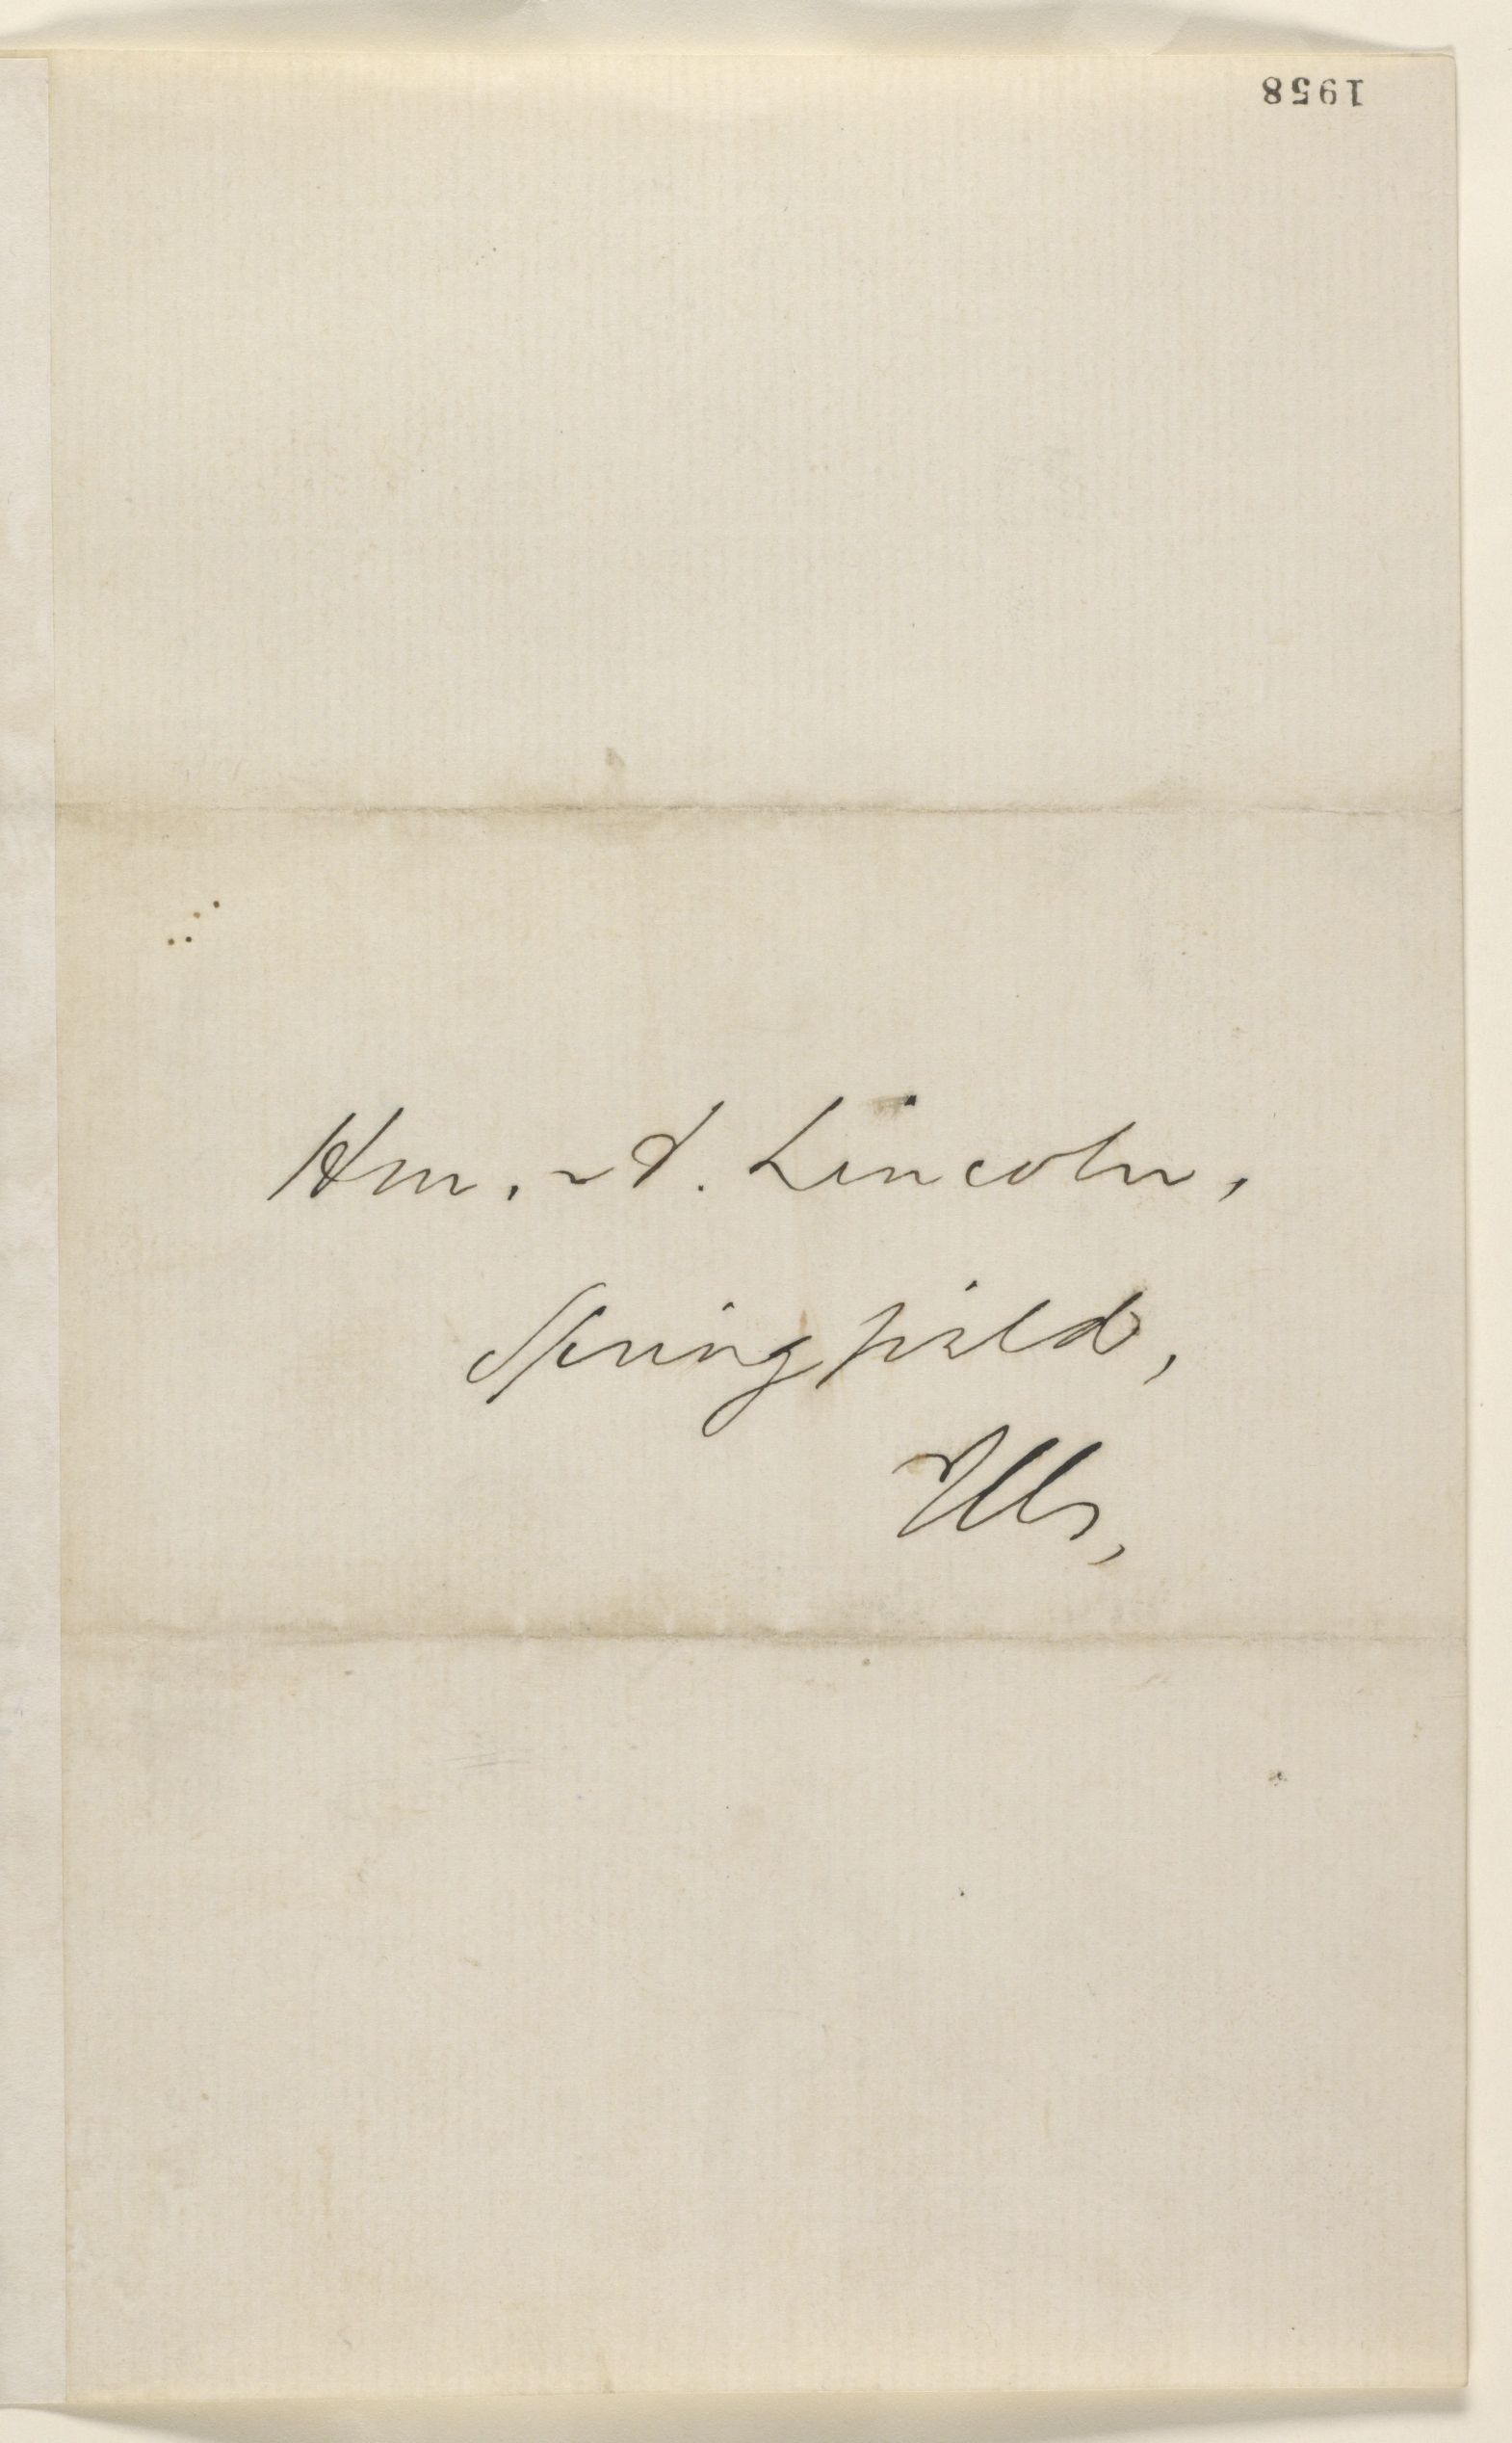 1958
Hon. A. Lincoln,
Springfield,
Ills,